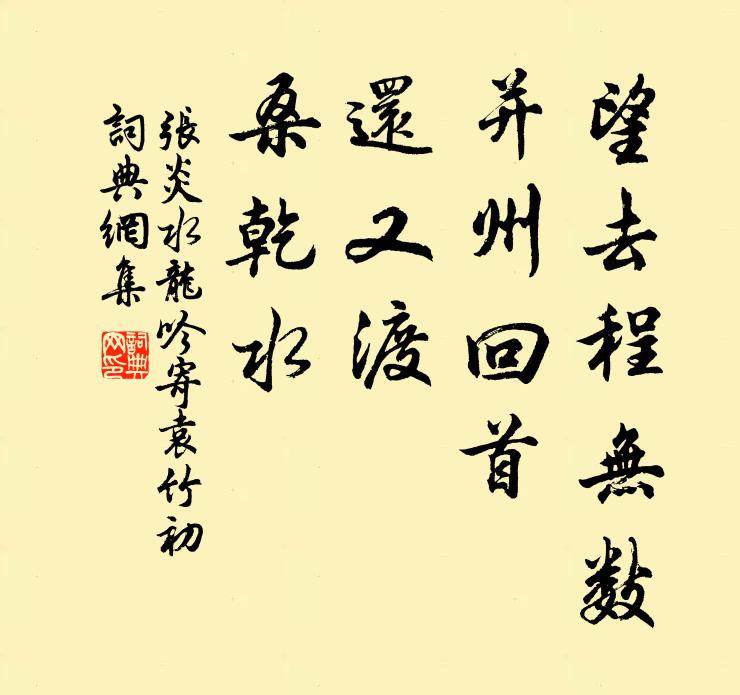 望去程無数
并州回首
還又渡
桑乾水
張炎水龍吟寄袁竹初
詞典網集
詞典
网印